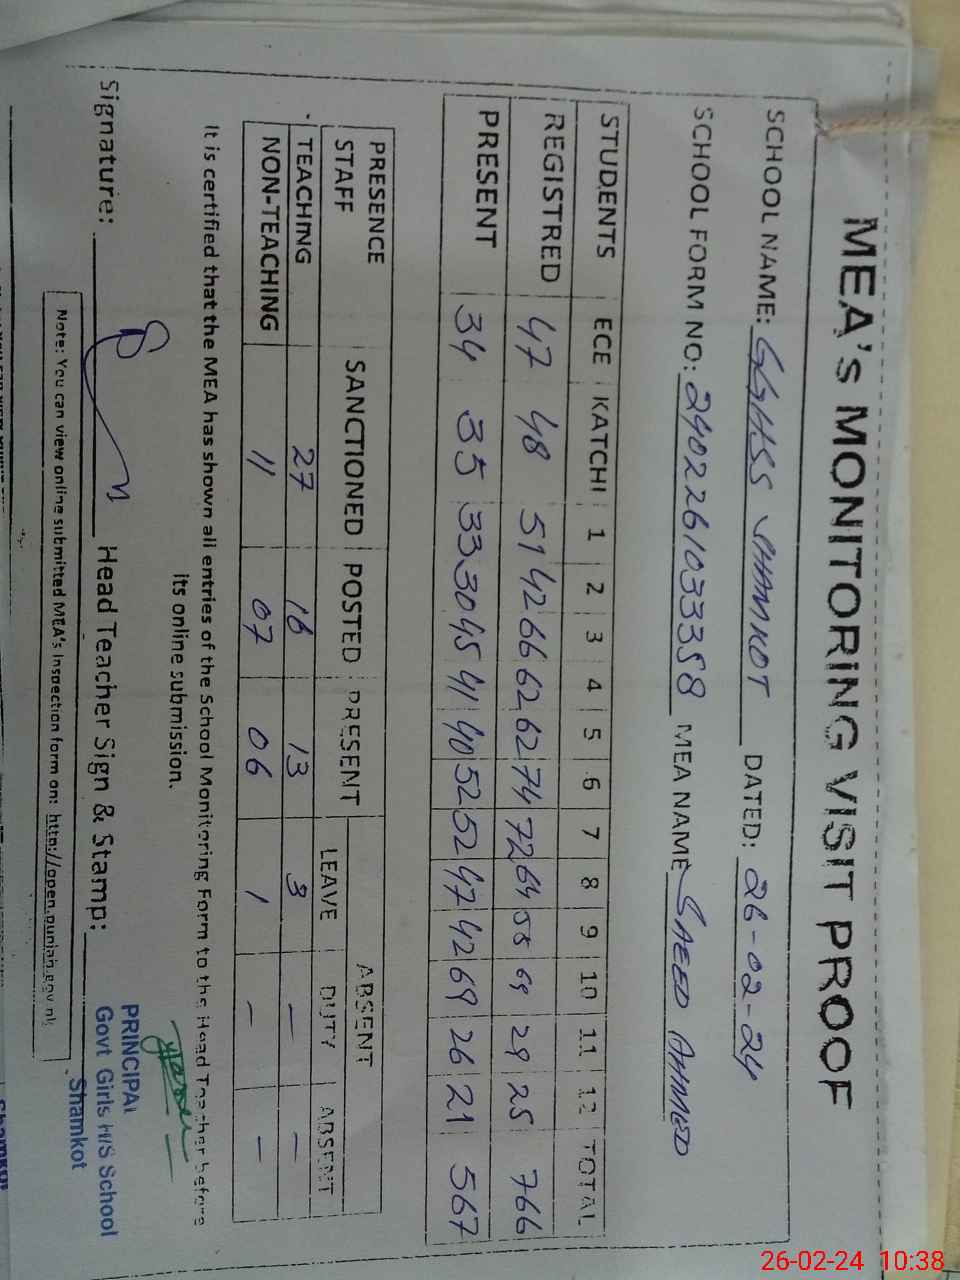 MEA's MONITORING VISIT PROOF
SCHOOL NAME: GGHSS SHAMKOT DATED: 26-02-24
SCHOOL FORM NO: 24022261033358 MEA NAME SAEED AHMED
STUDENTS ECE KATCHI 1 2 3 4 5 6 7 8 9 10 11 12 TOTAL
REGISTRED 47 48 51 42 66 62 62 74 72 64 55 69 29 25 766
PRESENT 34 35 33 30 45 41 40 52 52 47 42 69 26 21 567
PRESENCE STAFF SANCTIONED POSTED PRESENT ABSENT
LEAVE DUTY ABSENT
TEACHING 27 16 13 3 — —
NON-TEACHING 11 07 06 1 — —
It is certified that the MEA has shown all entries of the School Monitoring Form to the Head Teacher before
its online submission.
Signature: Head Teacher Sign & Stamp:
PRINCIPAL
Govt Girls H/S School
Shamkot
Note: You can view online submitted MEA's Inspection form on: http://open.punjab.gov.pk
26-02-24 10:38